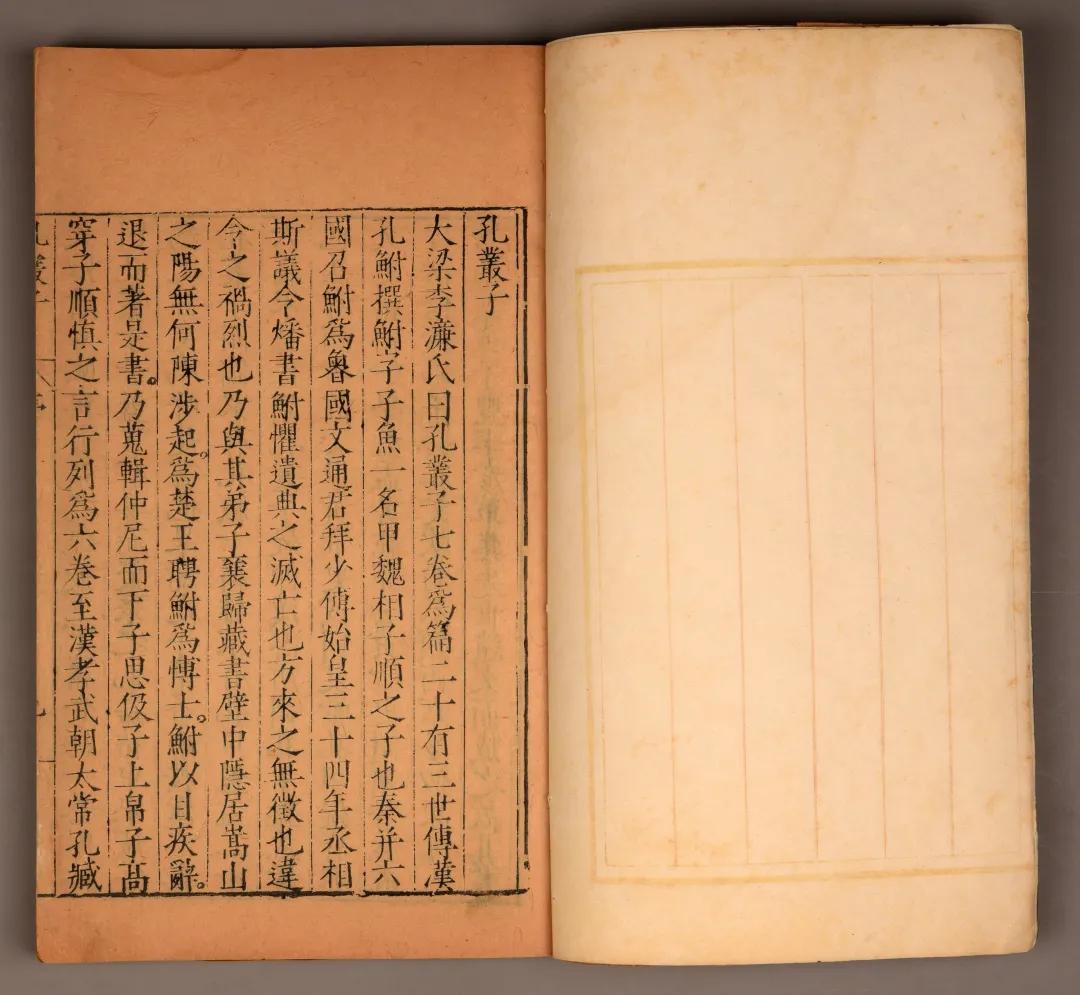 孔叢子
大梁李濂氏曰孔叢子七卷為篇二十有三世傳漢
孔鮒撰鮒字子魚一名甲魏相子順之子也秦并六
國召鮒為魯國文通君拜少傅始皇三十四年丞相
斯議令燔書鮒懼遺典之滅亡也方來之無徵也違
令之禍烈也乃與其弟子襄歸藏書壁中隱居嵩山
之陽無何陳涉起。為楚王聘鮒為博士。鮒以目疾辭。
退而著是書。乃蒐輯仲尼而下子思伋子上帛子高
穿子順慎之言行列為六卷至漢孝武朝太常孔臧
孔叢子